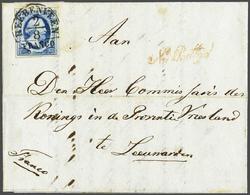 HEERENVEEN
2/8
FRANCO
Aan
Den Heer Commissaris des
Konings in de Provintie Vriesland
te
Leeuwarden
Franco